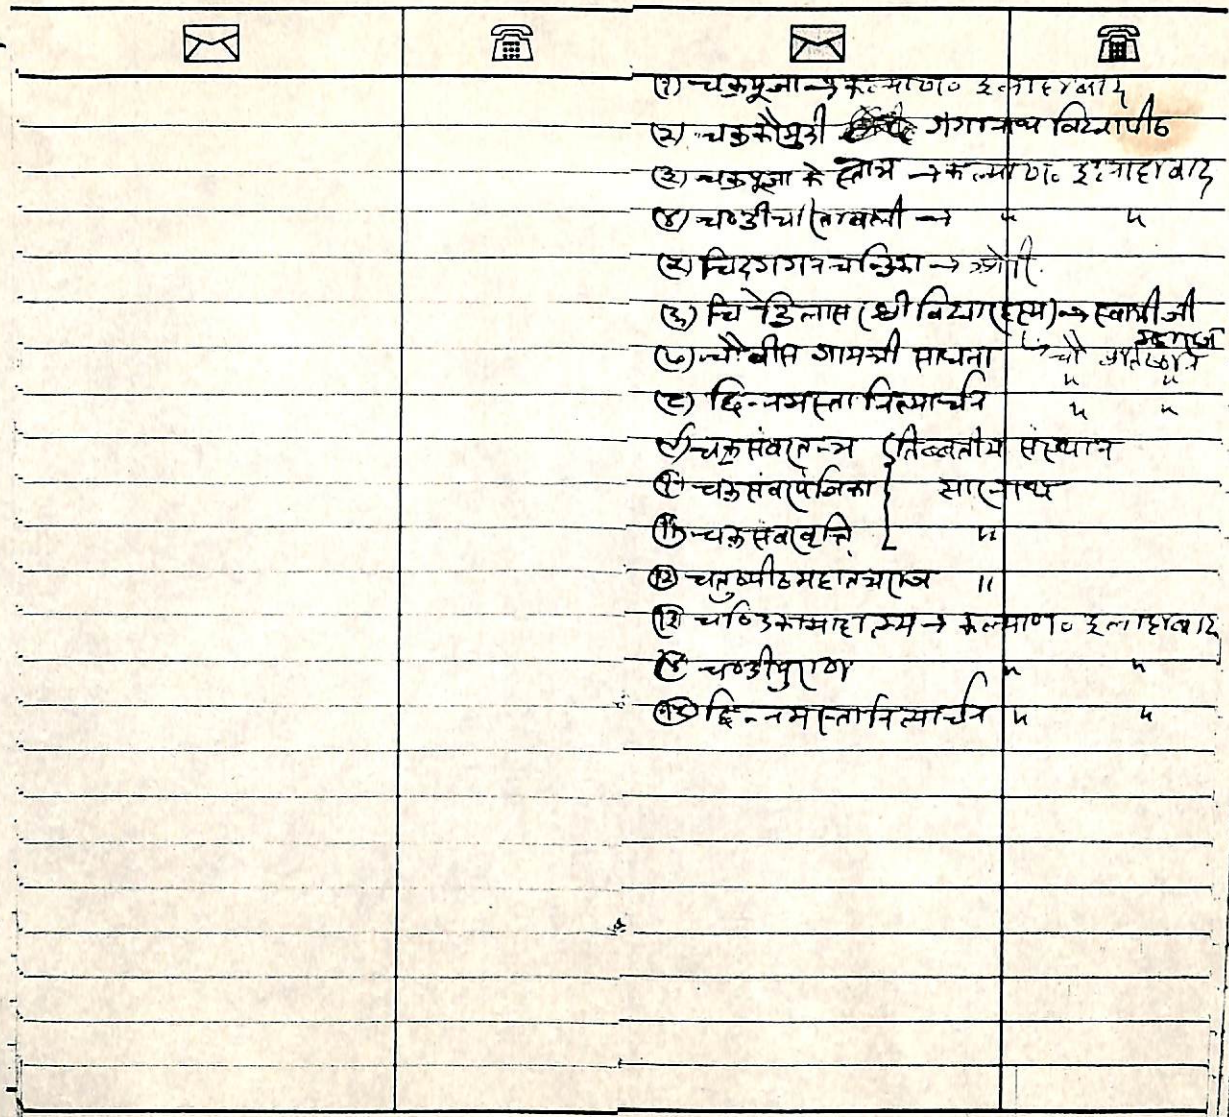 (१) चक्रपूजा → कल्याण॰ इलाहाबाद
(२) चक्रकौमुदी गंगानाथ विद्यापीठ
(३) चक्रपूजा के स्तोत्र → कल्याण॰ इलाहाबाद
(४) चण्डीचरितावली → " "
(५) चिदगगनचन्द्रिका →
(६) चिद्विलास (श्री विद्यारहस्य) → स्वामी जी महाराज
(७) चौबीस गायत्री साधना ↳ चौ " "
(८) छिन्नमस्तानित्यार्चन " "
(९) चक्रसंवरतन्त्र { तिब्बतीय संस्थान
(१०) चक्रसंवरपंजिका { सारनाथ
(११) चक्रसंवरवृत्ति { "
(१२) चतुष्पीठमहातन्त्रराज "
(१३) चण्डिकामाहात्म्य → कल्याण॰ इलाहाबाद
(१४) चण्डीपुराण " "
(१५) छिन्नमस्तानित्यार्चन " "